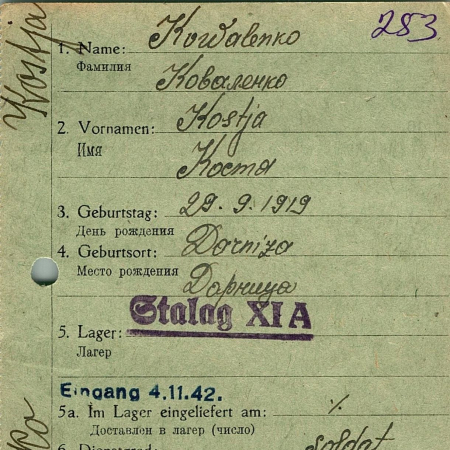 Kostja
283
1. Name: Kowalenko
Фамилия Коваленко
2. Vornamen: Kostja
Имя Костя
3. Geburtstag: 29. 9. 1919
День рождения
4. Geburtsort: Darniza
Место рождения Дарница
Stalag XI A
5. Lager:
Лагер
Eingang 4.11.42.
5a. Im Lager eingeliefert am: %
Доставлен в лагер (число)
6. Dienstgrad: Soldat